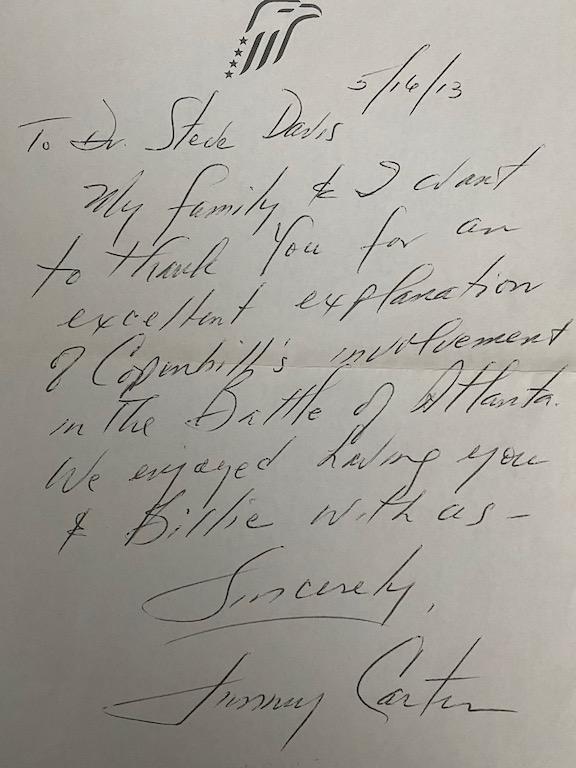 5/16/13
To Dr. Steve Davis
My family & I want
to thank you for an
excellent explanation
of Copenhill's involvement
in the Battle of Atlanta.
We enjoyed having you
& Billie with us -
Sincerely,
Jimmy Carter